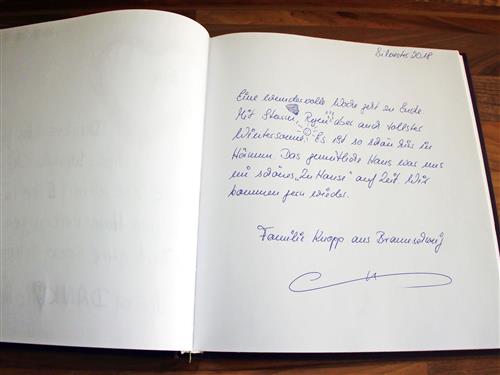 Silvester 2018
Eine wundervolle Woche geht zu Ende
Mit Sturm, Regen aber auch tollster
Wintersonne. Es ist so schön hier in
Das gemütliche Haus war uns
ein schönes "Zu Hause" auf Zeit. Wir
kommen gern wieder.
Familie Knopp aus Braunschweig
DANKE